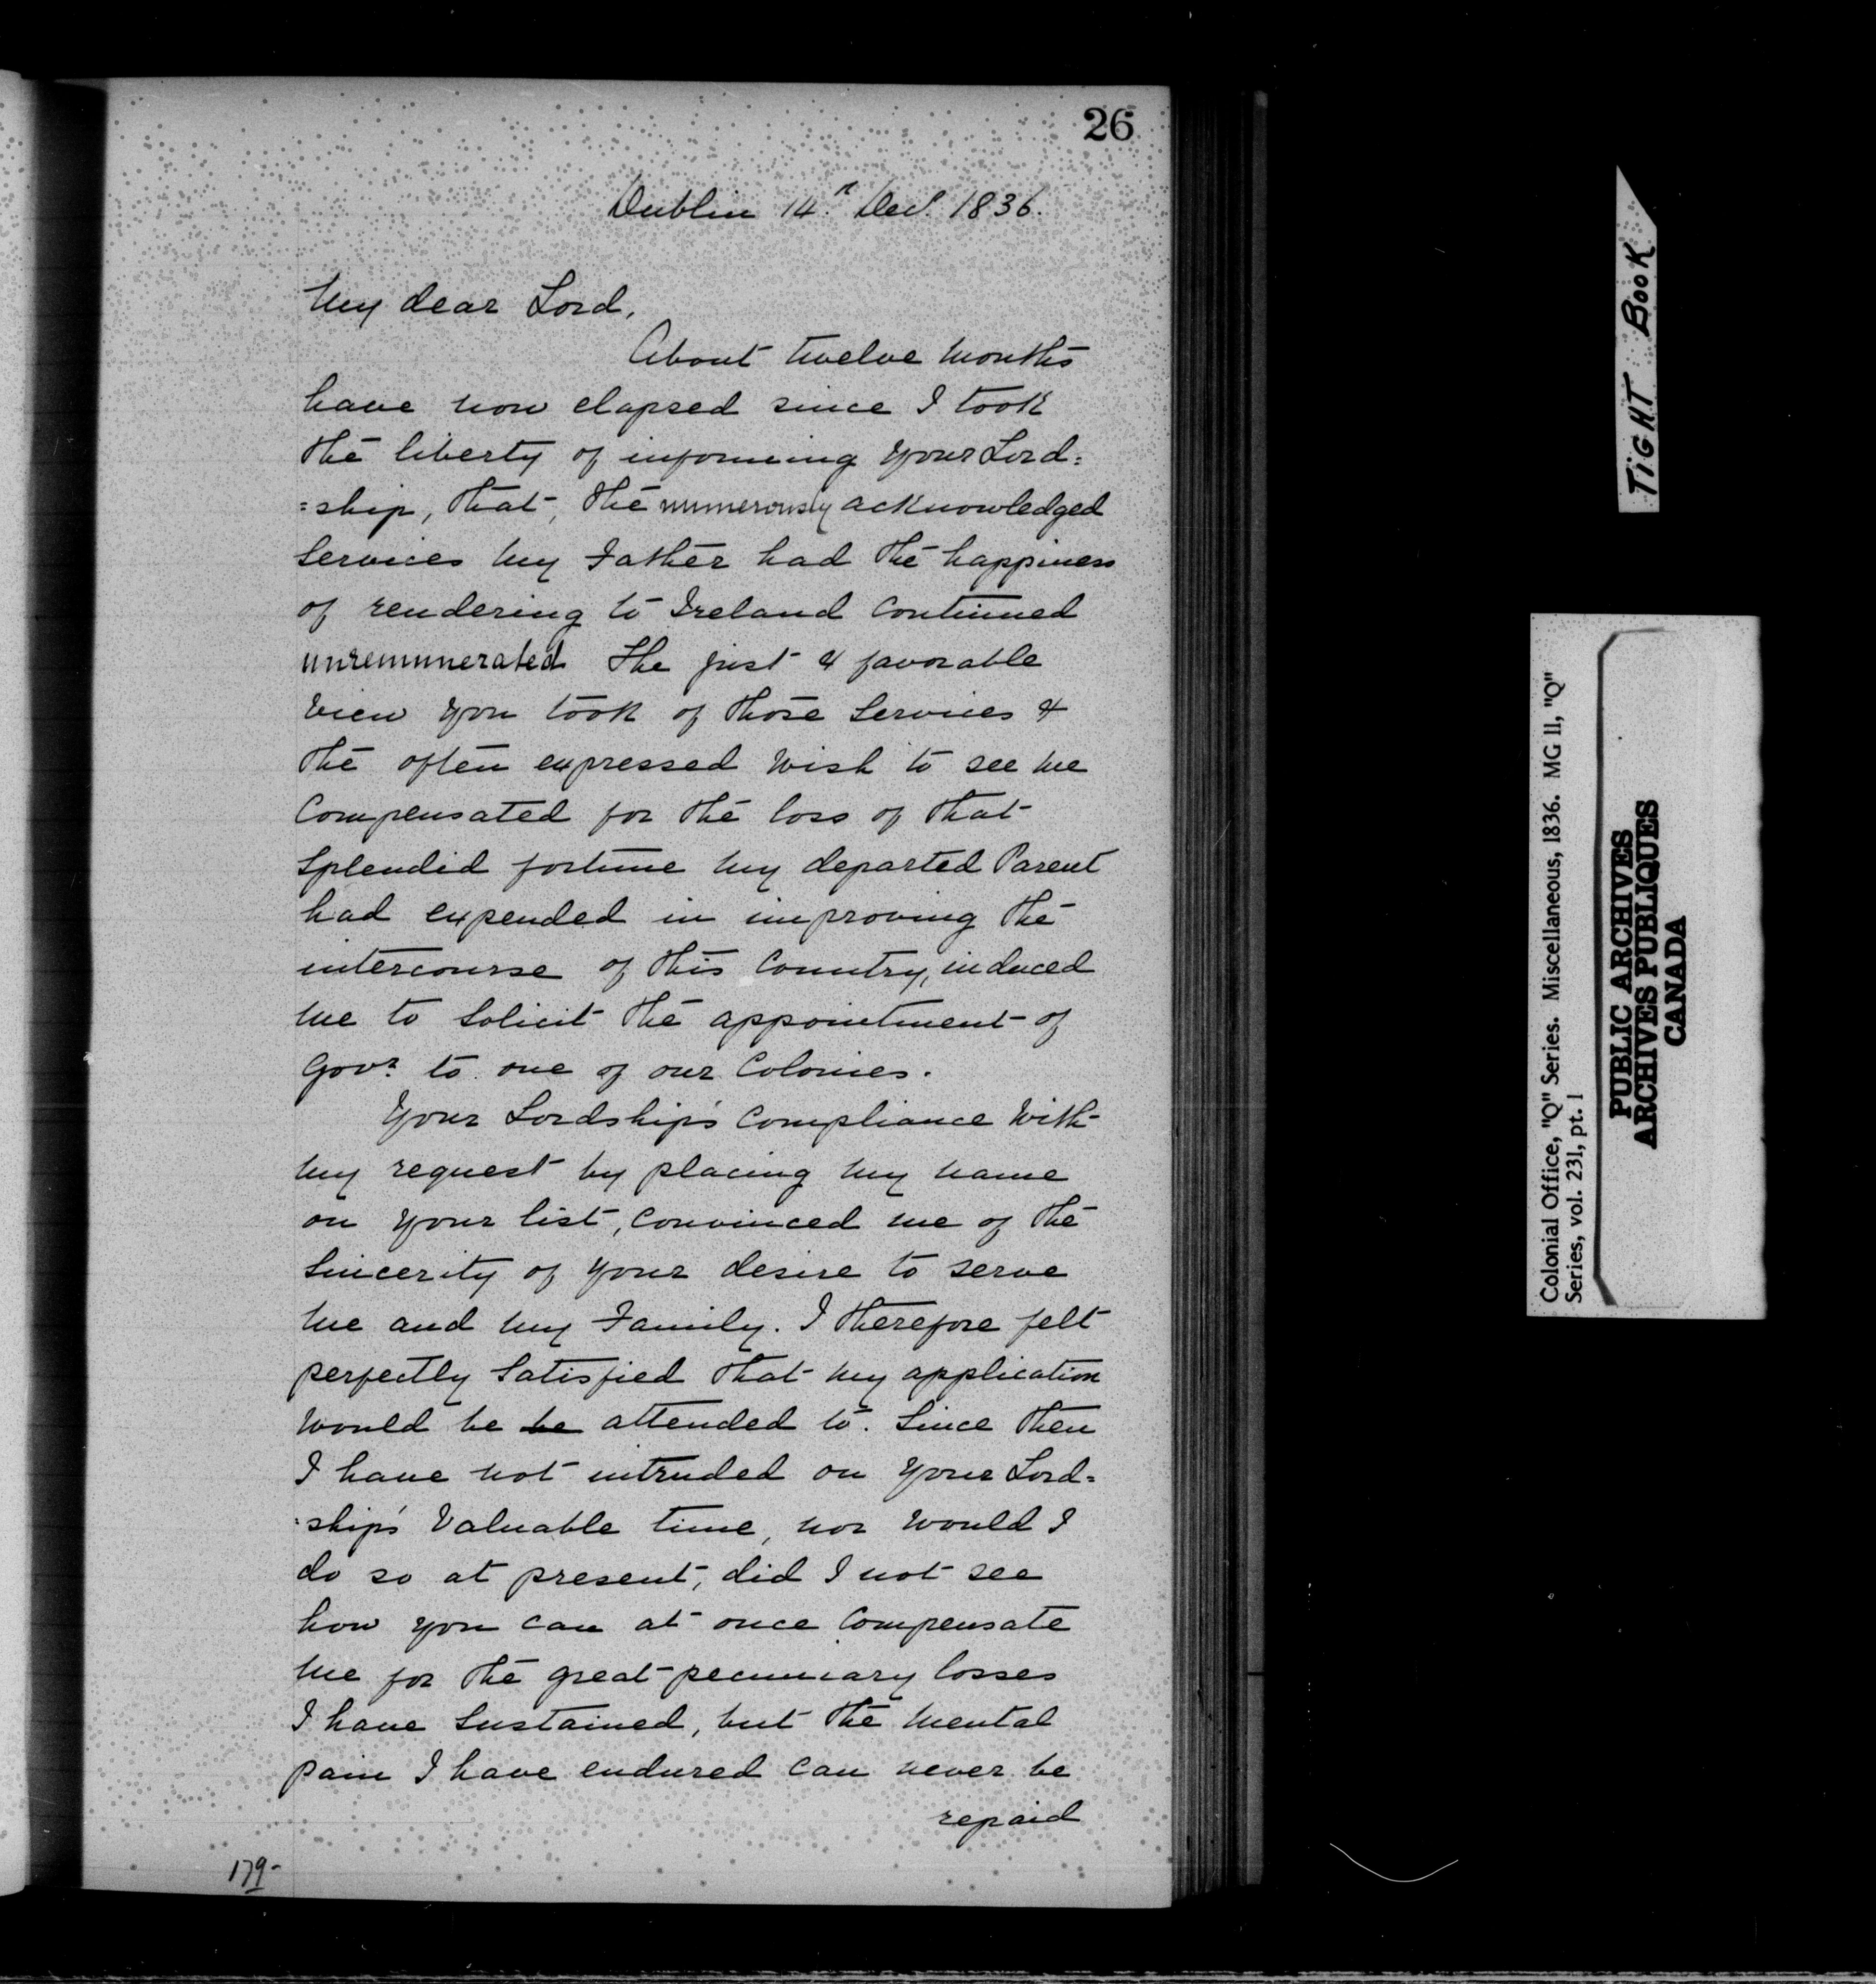 26
Dublin 14th Decr. 1836.
My dear Lord,
About twelve Months
have now elapsed since I took
the liberty of informing Your Lord=
=ship, that, the numerously acknowledged
Services My Father had the happiness
of rendering to Ireland Continued
unremunerated The just & favorable
View You took of those Services &
the often expressed Wish to see Me
Compensated for the loss of that
Splendid fortune My departed Parent
had expended in improving the
intercourse of this Country, induced
Me to Solicit the appointment of
Govr. to one of our Colonies.
Your Lordship's Compliance With
My request by placing My Name
on Your list, Convinced Me of the
Sincerity of Your desire to serve
Me and My Family. I therefore felt
perfectly Satisfied that My application
Would be be attended to. Since then
I have not intruded on Your Lord=
=ship's Valuable time, nor Would I
do so at present, did I not see
how You Can at once Compensate
Me for the great pecuniary losses
I have Sustained, but the Mental
pain I have endured Can never be
repaid
179-
TiGHT BooK
Colonial Office, "Q" Series. Miscellaneous, 1836. MG 11, "Q"
Series, vol. 231, pt. 1
PUBLIC ARCHIVES
ARCHIVES PUBLIQUES
CANADA